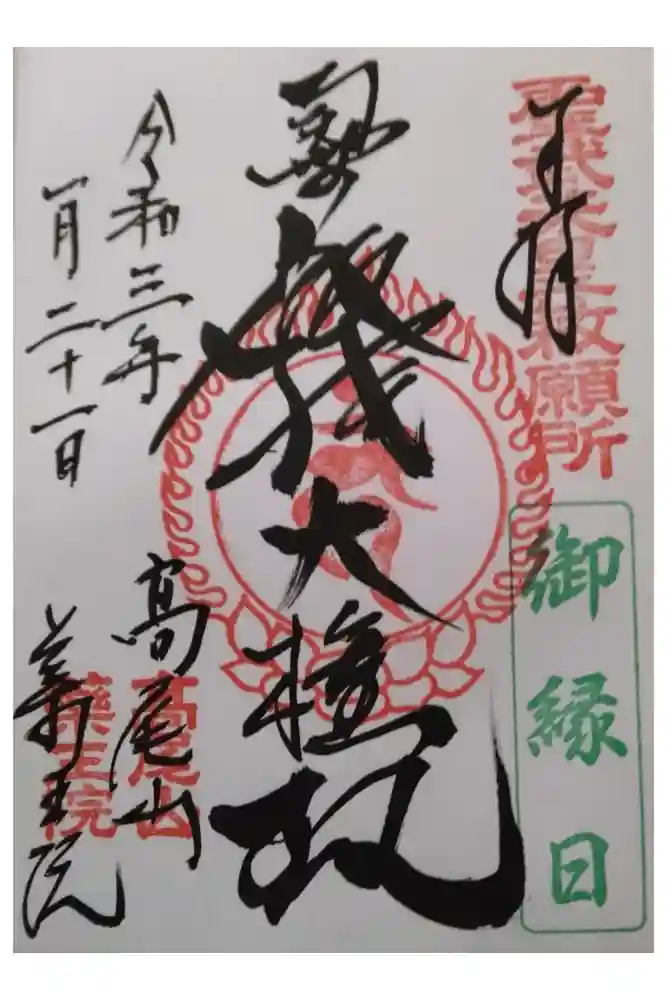 奉拝
聖武天皇敕願所
御縁日
飯縄大権現
令和三年
一月二十一日
高尾山
薬王院
高尾山
藥王院